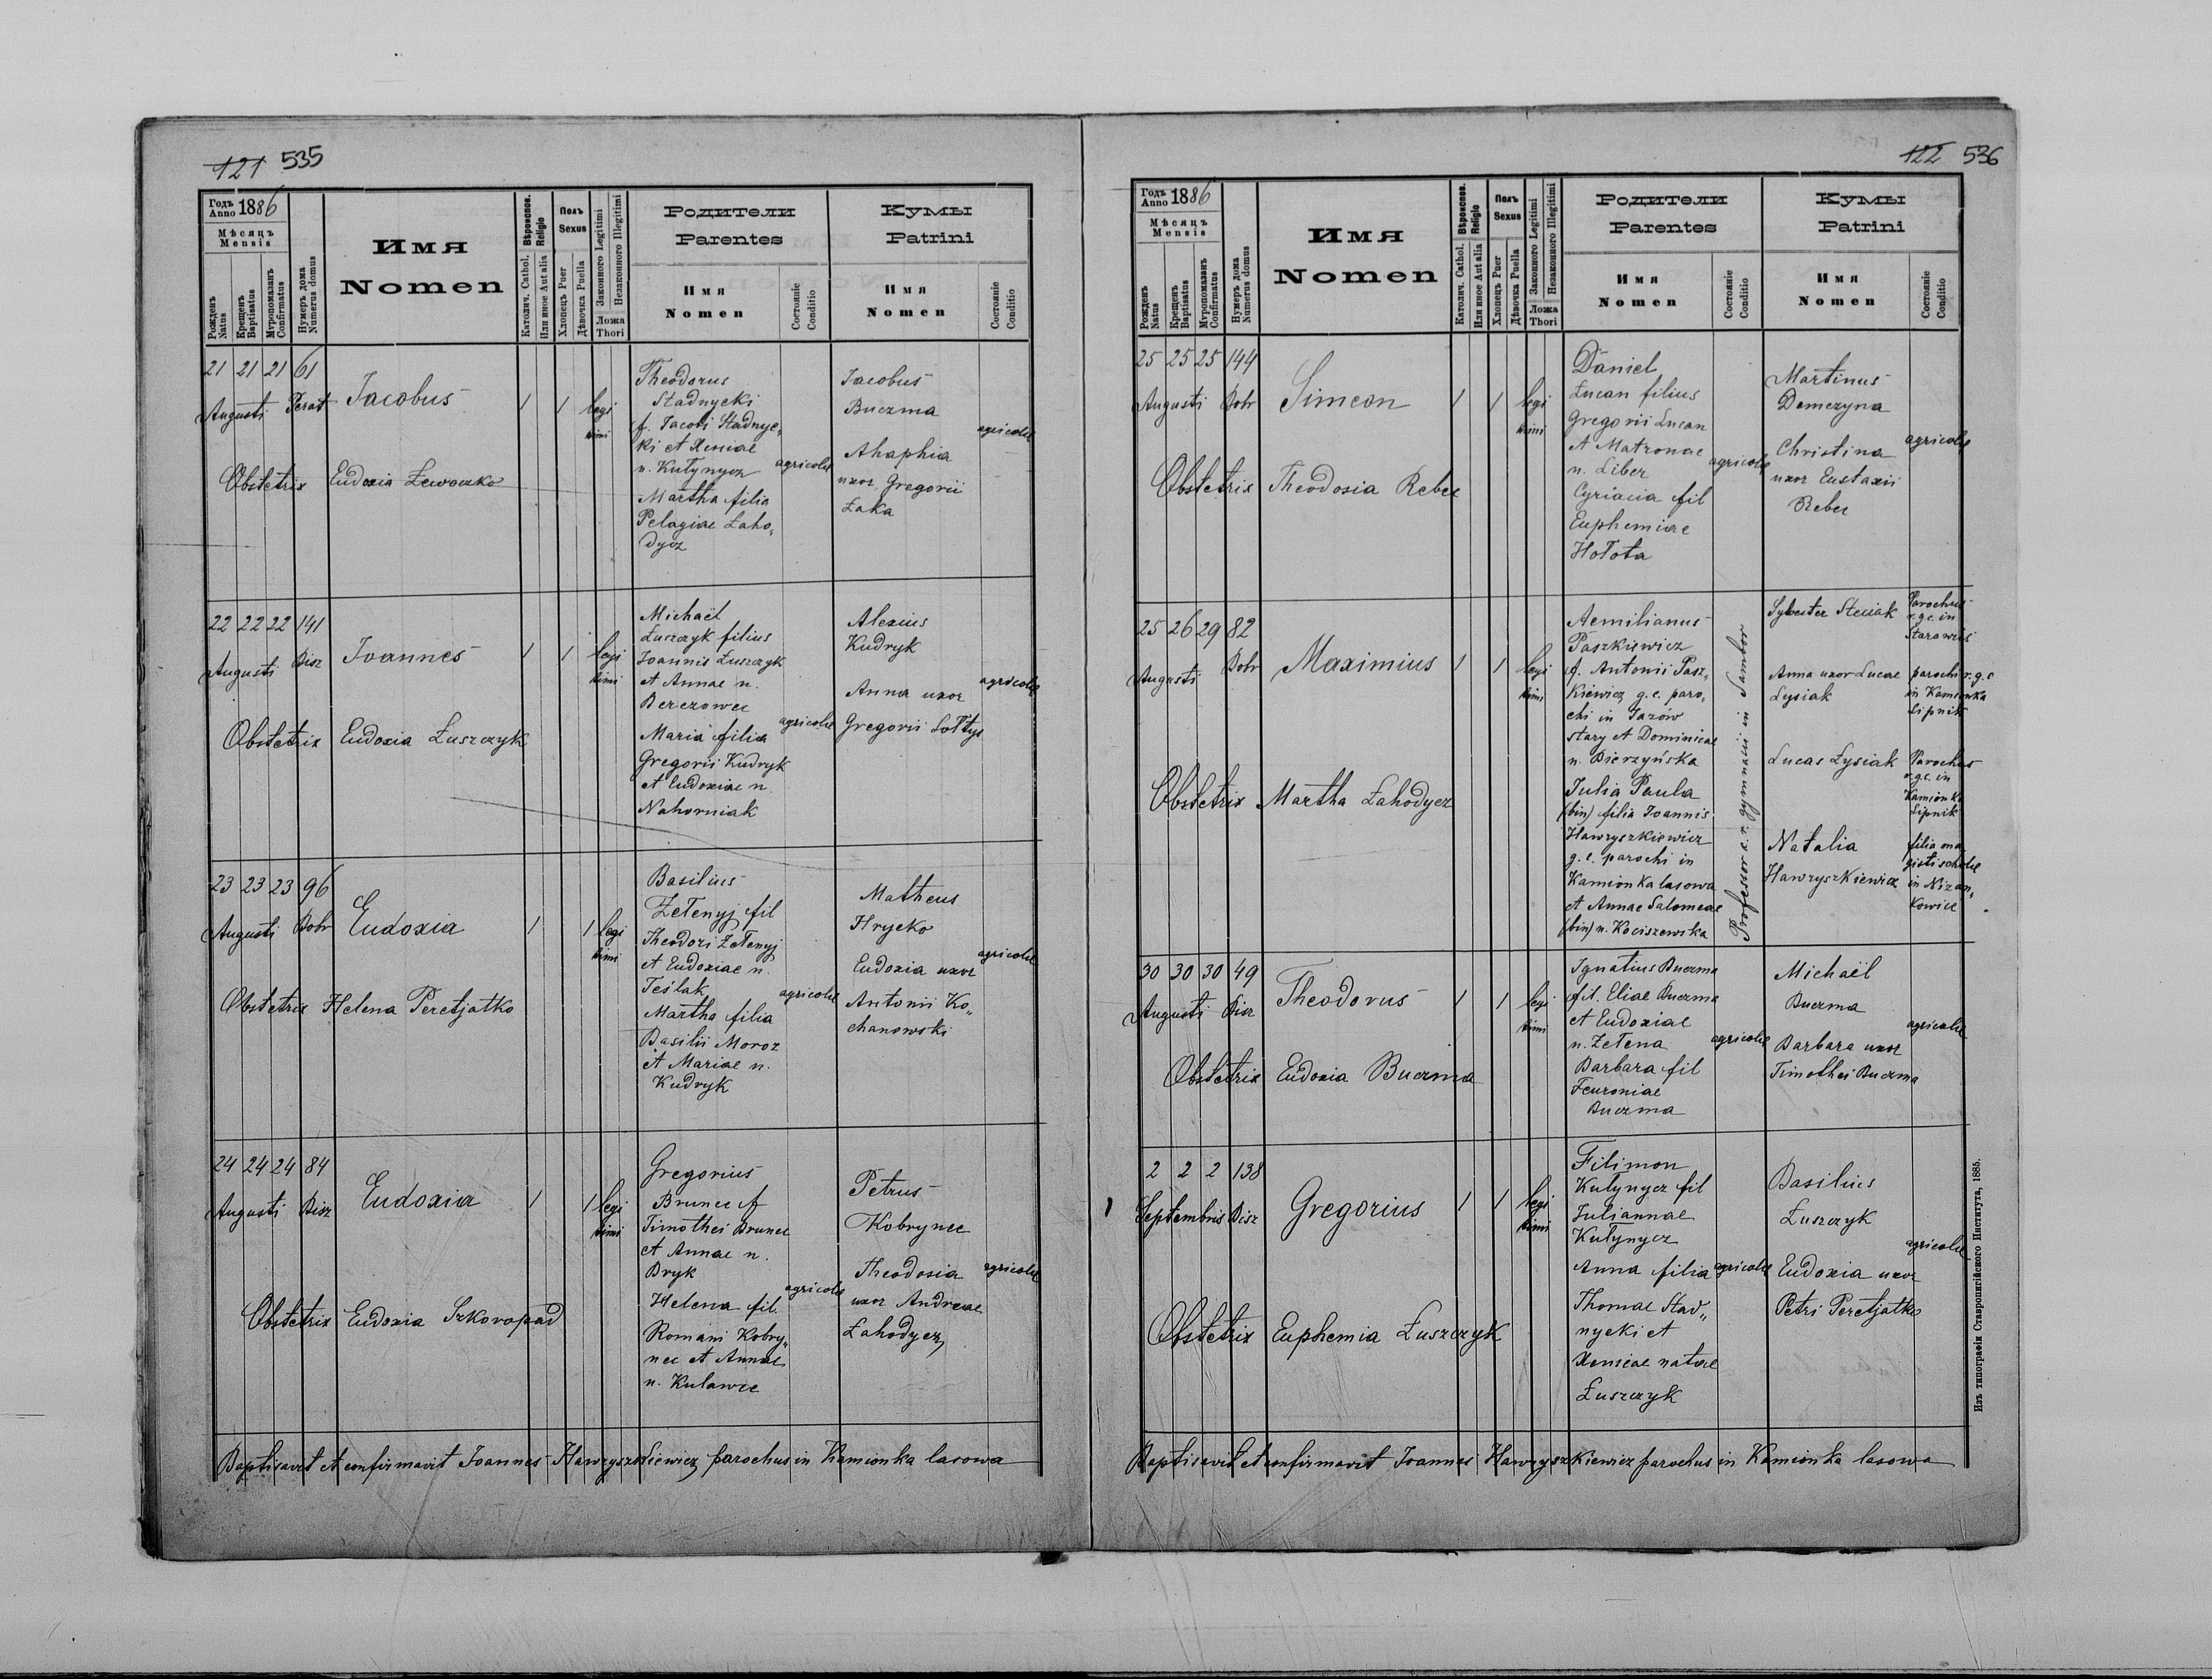 121 535
Годъ Anno 1886
Мѣсяцъ Mensis
Рожденъ Natus
Крещенъ Baptisatus
Мѵропомазанъ Confirmatus
Нумеръ дома Numerus domus
Имя
Nomen
Вѣроиспов. Religio
Католич. Cathol.
Или иное Aut alia
Полъ Sexus
Хлопецъ Puer
Дѣвочка Puella
Законного Legitimi
Незаконного Illegitimi
Ложа Thori
Родители
Parentes
Имя
Nomen
Состояніе Conditio
Кумы
Patrini
Имя
Nomen
Состояніе Conditio
21 21 21 61
Augusti
Jacobus
1 1 legi
timi
Obstetrix Eudoxia Lewoczko
Theodorus
Stadnycki
f. Jacobi Stadnyc„
ki et Xeniae
n. Kułynycz
Martha filia
Pelagiae Łaho„
dycz
agricolae
Jacobus
Buczma
Ahaphia
uxor Gregorii
Łaka
agricolae
22 22 22 141
Augusti Bisz
Joannes
1 1 legi
timi
Obstetrix Eudoxia Łuszczyk
Michaël
Łuszczyk filius
Joannis Łuszczyk
et Annae n.
Berezowec
Maria filia
Gregorii Kudryk
et Eudoxiae n.
Nahorniak
agricolae
Alexius
Kudryk
Anna uxor
Gregorii Sołtys
agricolae
23 23 23 96
Augusti Bobr
Eudoxia
1 1 legi
timi
Obstetrix Helena Peretjatko
Basilius
Zełenyj fil
Theodori Zełenyj
et Eudoxiae n.
Teślak
Martha filia
Basilii Moroz
et Mariae n.
Kudryk
agricolae
Matheus
Hrycko
Eudoxia uxor
Antonii Ko„
chanowski
agricolae
24 24 24 84
Augusti Bisz
Eudoxia
1 1 legi
timi
Obstetrix Eudoxia Szkoropad
Gregorius
Brunec f
Timothei Brunec
et Annae n.
Bryk
Helena fil.
Romani Kobry„
nec et Annae
n. Kulawec
agricolae
Petrus
Kobrynec
Theodosia
uxor Andreae
Łahodycz
agricolae
Baptisavit et confirmavit Joannes Hawryszkiewicz parochus in Kamionka lasowa
122 536
Годъ Anno 1886
Мѣсяцъ Mensis
Рожденъ Natus
Крещенъ Baptisatus
Мѵропомазанъ Confirmatus
Нумеръ дома Numerus domus
Имя
Nomen
Вѣроиспов. Religio
Католич. Cathol.
Или иное Aut alia
Полъ Sexus
Хлопецъ Puer
Дѣвочка Puella
Законного Legitimi
Незаконного Illegitimi
Ложа Thori
Родители
Parentes
Имя
Nomen
Состояніе Conditio
Кумы
Patrini
Имя
Nomen
Состояніе Conditio
25 25 25 144
Augusti Bobr
Simeon
1 1 legi
timi
Obstetrix Theodosia Rebec
Daniel
Lucan filius
Gregorii Lucan
et Matronae
n. Liber
Cyriacia fil
Euphemiae
Hołota
agricolae
Martinus
Demczyna
Christina
uxor Eustaxii
Rebec
agricolae
25 26 29 82
Augusti Bobr
Maximius
1 1 legi
timi
Obstetrix Martha Łahodycz
Aemilianus
Paszkiewicz
f. Antonii Pasz„
kiewicz g. c. paro„
chi in Jazów
stary et Dominicae
n. Bierzyńska
Julia Paula
(bin) filia Joannis
Hawryszkiewicz
g. c. parochi in
Kamionka lasowa
et Annae Salomeae
(bin) n. Kociszewska
Professor c. r. gymnasii in Sambor
Sylvester Steciak
Parochus
r. g. c. in
Anna uxor Lucae
Lysiak
parochi r. g. c
in Kamionka
Lipnik
Lucas Lysiak
Parochus
r. g. c. in
Kamionka
Lipnik
Natalia
Hawryszkiewicz
filia ma
gistri scholae
in Nizan„
kowice
30 30 30 49
Augusti Bisz
Theodorus
1 1 legi
timi
Obstetrix Eudoxia Buczma
Ignatius Buczma
fil. Eliae Buczma
et Eudoxiae
n. Zełena
Barbara fil
Feuroniae
Buczma
agricolae
Michaël
Buczma
Barbara uxor
Timothei Buczma
agricolae
2 2 2 138
Septembris Bisz
Gregorius
1 1 legi
timi
Obstetrix Euphemia Łuszczyk
Filimon
Kułynycz fil
Juliannae
Kułynycz
Anna filia
Thomae Stad„
nycki et
Xeniae natae
Łuszczyk
agricolae
Basilius
Łuszczyk
Eudoxia uxor
Petri Peretjatko
agricolae
Baptisavit et confirmavit Joannes Hawryszkiewicz parochus in Kamionka lasowa
Изъ типографіи Ставропигійского Института, 1885.